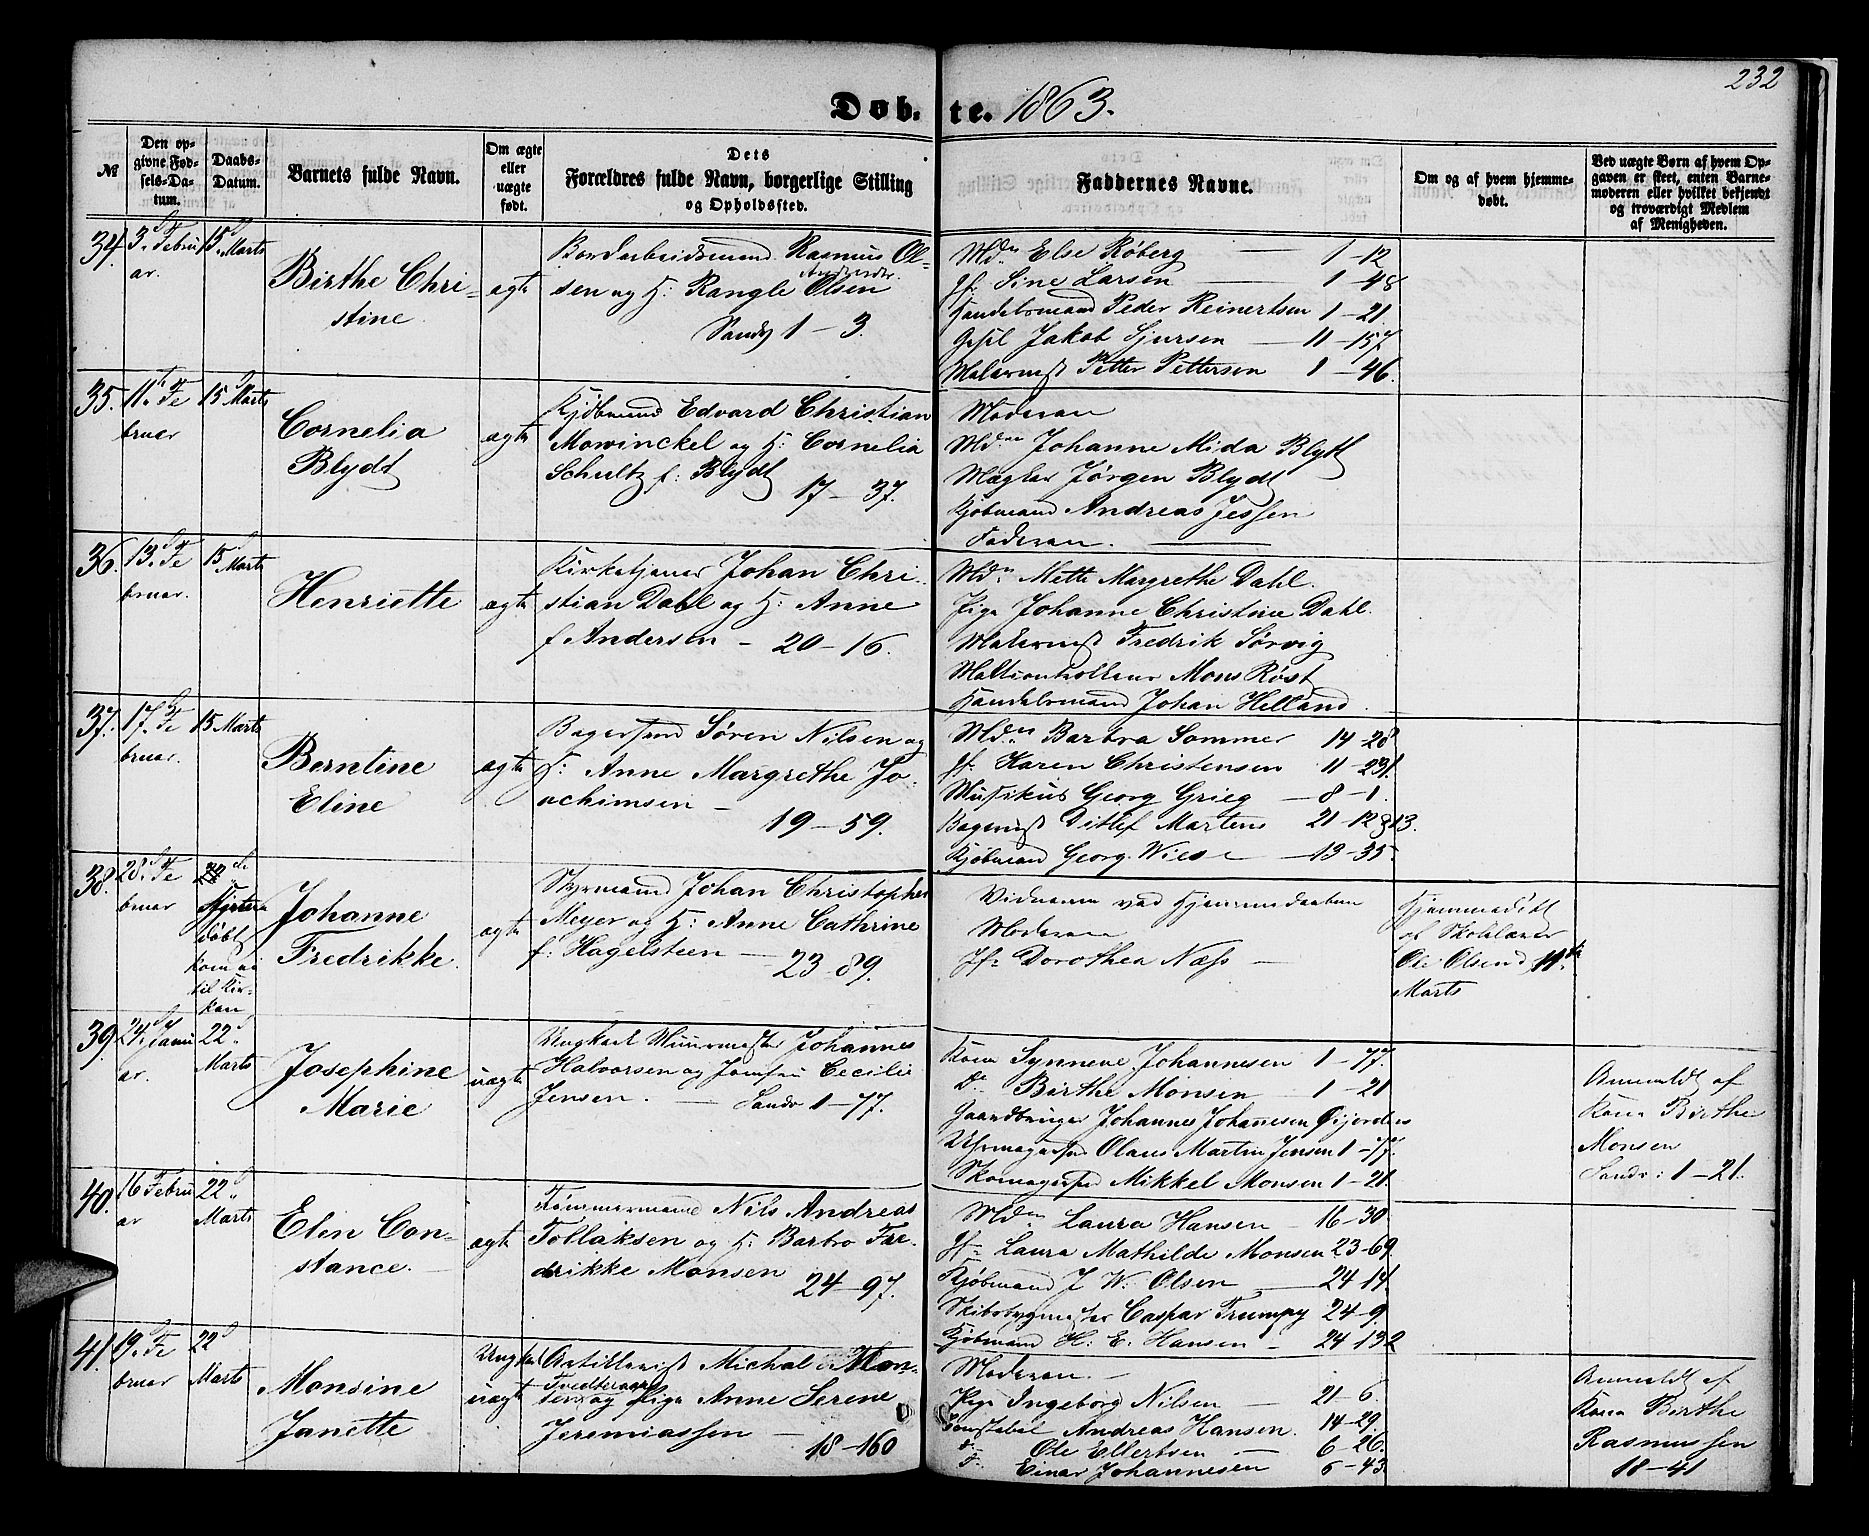 232
Døbte. 1863.
№
Den opgivne Fødsels-Datum.
Daabs-Datum.
Barnets fulde Navn.
Om ægte eller uægte født.
Dets Forældres fulde Navn, borgerlige Stilling og Opholdssted.
Faddernes Navne.
Om og af hvem hjemmedøbt.
Ved uægte Børn af hvem Opgaven er skeet, enten Barnemoderen eller hvilket bekjendt og troværdigt Medlem af Menigheden.
34. 3. Februar. 15 Marts
Birthe Christine
ægte
Bordarbeidsmand Rasmus Ol-
sen og H: Rangle Olsen
Sandv 1-3.
Md. Else Røberg 1-12
Jf. Sine Larsen 1-48
Handelsmand Peder Reinertsen 1-21
Jakob Sjursen 11-157
Petter Pettersen 1-46.
35. 11. Februar 15 Marts
Cornelia
Blydt
ægte
Kjøbmand Edvard Christian
Mowinckel og H: Cornelia
Schultz f: Blydt 17-37.
Moderen
Md. Johanne Mida Blytt
Mægler Jørgen Blydt
Kjøbmand Andreas Jessen
Faderen.
36. 13. Februar. 15 Marts
Henriette
ægte
Kirketjener Johan Chri-
stian Dahl og H: Anne
f Andersen - 20-16.
Md. Mette Margrethe Dahl.
Pige Johanne Christine Dahl.
Fredrik Sørvig
Mons Røst
Handelsmand Johan Helland
37. 17. Februar. 15 Marts
Berntine
Eline
ægte
Søren Nilsen og
H: Anne Margrethe Jo-
achimsen -
19-59.
Md. Barbra Sommer 14-28
Jf. Karen Christensen 11-231.
Musikus Georg Grieg -8-1.
Ditlef Martens 21-12
Kjøbmand Georg Wiese -13-35.
38. 28. Februar
døbt
kom ei
til Kir-
ken
Johanne
Fredrikke.
ægte
Styrmand Johan Christopher
Meyer og H: Anne Cathrine
f: Hagelsteen - 23-89.
Vidnerne ved Hjemmedaaben
Moderen
Jf. Dorothea Næss -
Hjemmedøbt
af Skolelærer
Ole Olsen d 11te
Marts
39. 24. Januar. 22 Marts
Josephine
Marie
uægte
Ungkarl Murermester Johannes
Halvorsen og Jomfru Cecilie
Jensen. - Sandv 1-77.
Kone Synneve Johannesen 1-77.
Do Birthe Monsen 1-21
Gaardbruger Johannes Johannesen
Olaus Martin Jensen 1-77.
Mikkel Monsen 1-21
Anmeldt af
Kone Birthe
Monsen
Sandv: 1-21.
40. 16 Februar 22 Marts
Elen Con-
stance.
ægte
Tømmermand Nils Andreas
Tollaksen og H: Barbro Fre-
drikke Monsen
24-97.
Md. Laura Hansen - 16-30
Jf. Laura Mathilde Monsen 23-69
Kjøbmand J. W. Olsen 24-14
Skibsbygmester Caspar Trumpy 24-9
Kjøbmand H: E. Hansen - 24-132
41. 19. Februar 22 Marts
Monsine
Janette
uægte
Ungkarl Artillerist Michal Mon-
og Pige Anne Serene
Jeremiassen - 18-160
Moderen. -
Pige Ingeborg Nilsen - 21-6
Konstabel Andreas Hansen. 14-29
do Ole Ellertsen - 6-26.
Einar Johannesen 6-43
Anmeldt af
Kone Birthe
Rasmussen
18-41